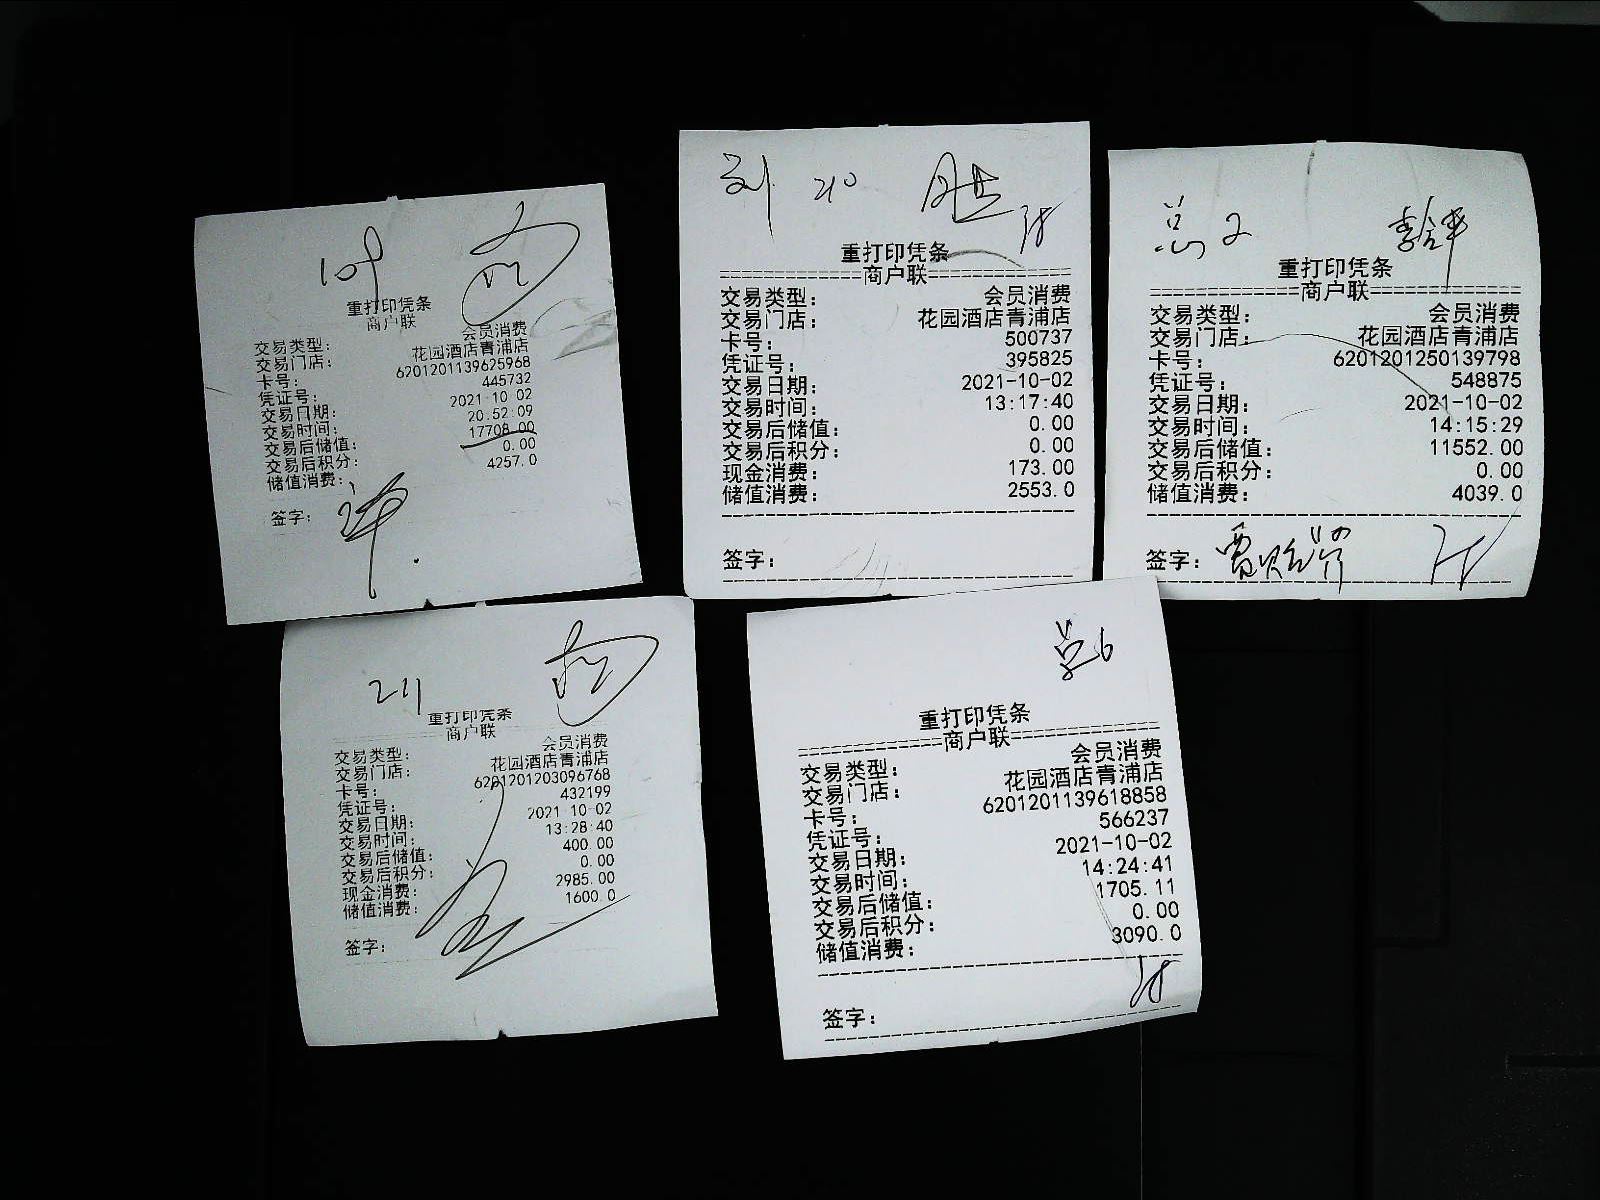 109
重打印凭条
商户联
交易类型： 会员消费
交易门店： 花园酒店青浦店
卡号： 6201201139625968
凭证号： 445732
交易日期： 2021-10-02
交易时间： 20:52:09
交易后储值： 17708.00
交易后积分： 0.00
储值消费： 4257.0
签字：
刘 210
重打印凭条
===========商户联===========
交易类型： 会员消费
交易门店： 花园酒店青浦店
卡号： 500737
凭证号： 395825
交易日期： 2021-10-02
交易时间： 13:17:40
交易后储值： 0.00
交易后积分： 0.00
现金消费： 173.00
储值消费： 2553.0
签字：
总2
重打印凭条
===========商户联===========
交易类型： 会员消费
交易门店： 花园酒店青浦店
卡号： 6201201250139798
凭证号： 548875
交易日期： 2021-10-02
交易时间： 14:15:29
交易后储值： 11552.00
交易后积分： 0.00
储值消费： 4039.0
签字：
211
重打印凭条
商户联
交易类型： 会员消费
交易门店： 花园酒店青浦店
卡号： 6201201203096768
凭证号： 432199
交易日期： 2021-10-02
交易时间： 13:28:40
交易后储值： 400.00
交易后积分： 0.00
现金消费： 2985.00
储值消费： 1600.0
签字：
总6
重打印凭条
===========商户联===========
交易类型： 会员消费
交易门店： 花园酒店青浦店
卡号： 6201201139618858
凭证号： 566237
交易日期： 2021-10-02
交易时间： 14:24:41
交易后储值： 1705.11
交易后积分： 0.00
储值消费： 3090.0
签字：